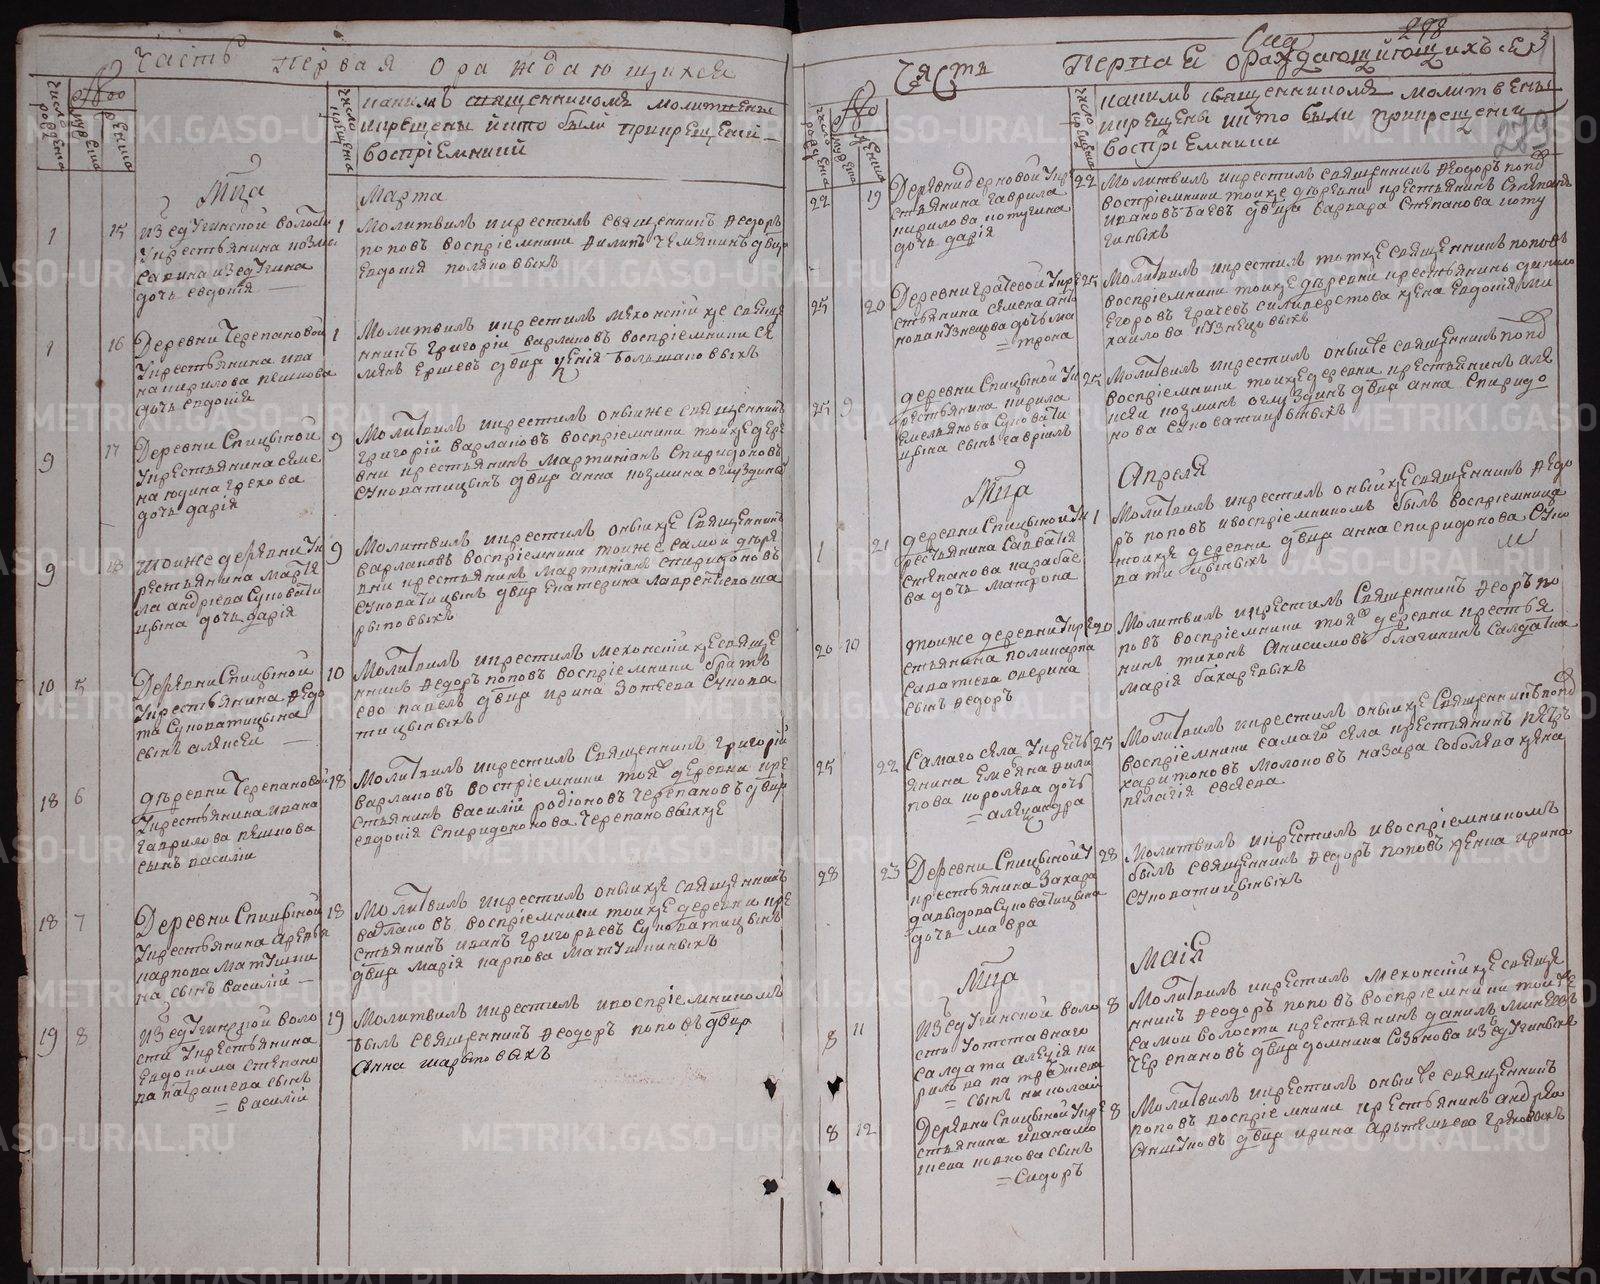 Часть первая о раждающихся
Число рождения
№о
мужеска
женска
Число крещения
каким священником молитвены
и крещены и кто были при крещении
восприемники
Мца Марта
1 15 1
из Ядугинской волости
крестьянина Козми
Савина из Ядугина
дочь Евдокия
Молитвил и крестил священник Феодоръ
поповъ восприемники Филипъ двца
Евдокия Поляковыхъ
1 16 1
Деревни Черепановой
крестьянина Ива
на Кирилова Пешкова
дочь Евдокия
Молитвил и крестил мехонский же священ
никъ Григорий Варлаковъ восприемники Се
менъ Ершевъ двца Ксения Большаковыхъ
9 17 9
Деревни Спицыной
крестьянина Семе
на Юдина Грехова
дочь Дария
Молитвил и крестил оный же священникъ
Григорий Варлаковъ восприемники тоижъ дере
вни крестьянинъ Мартиниан Спиридоновъ
Суковатицынъ двца Анна Козмина Оглуздиныхъ
9 18 9
Тоиже деревни ку
рестьянина Матфея
Суковати
цына дочь Дария
Молитвил и крестил оный же священникъ
Варлаковъ восприемники тоиже самой дере
вни крестьянинъ Мартинианъ Спиридоновъ
Суковатицынъ двца Екатерина Лаврентиева Ша
рыповыхъ
10 5 10
Деревни Спицыной
крестьянина Федо
та Суковатицына
сынъ Алексеи
Молитвил и крестил мехонский же священ
никъ Феодоръ поповъ восприемники братъ
ево Павелъ двца Ирина Зотеева Сукова
тицыныхъ
18 6 18
Деревни Черепановой
крестьянина Ивана
Гаврилова Пешкова
сынъ Василии
Молитвил и крестил священникъ Григорий
Варлаковъ восприемники тояже деревни кре
стьянинъ Василий Родионовъ Черепановъ двца
Евдокия Спиридонова Черепановыхже
18 7 18
Деревни Спицыной
крестьянина
Карпова Матушки
на сынъ Василий
Молитвил и крестил оный же священникъ
Варлаковъ восприемники тоижъ деревни кре
стьянинъ Иванъ Григорьевъ Суковатицынъ
двца Мария Карпова Матушкиныхъ
19 8 19
из Ядугинской воло
сти крестьянина
Евдокима Степано
ва Патрашева сынъ
= Василий
Молитвил и крестил и восприемникомъ
былъ священникъ Феодоръ поповъ двца
Анна Шарыповыхъ
298
279
Часть первая о раждающихся
Число рождения
№о
мужеска
женска
Число крещения
каким священником молитвены
и крещены и кто были при крещении
восприемники
22 19 22
Деревни Дерновой кре
стьянина Гаврила
Кирилова Котугина
дочь Дария
Молитвил и крестил священникъ Феодоръ попо
восприемники тоижъ деревни крестьянинъ Степанъ
Ивановъ двца Варвара Степанова Коту
гиныхъ
25 20 25
Деревни Грачевой кре
стьянина Семена Анто
нова Кузнецова дочь Ма
= трона
Молитвил и крестил тотже священникъ поповъ
восприемники тоижъ деревни крестьянинъ Данило
Егоровъ Грачевъ Силиверстова жена Евдокия Ми
хаилова Кузнецовыхъ
25 9 25
деревни Спицыной ку
рестьянина Кирила
Емельянова Суковати
цына сынъ Гаврилъ
Молитвил и крестил оныйже священникъ попо
восприемники тоижъ деревни крестьянинъ Але
ксеи Козминъ Оглуздинъ двца Анна Спиридо
нова Суковатицыныхъ
Мца Апреля
1 21 1
деревни Спицыной ку
рестьянина Савватия
Степанова Карабае
ва дочь Матрона
Молитвил и крестил оный же священникъ Федо
ръ поповъ и восприемником былъ восприемница
тоижъ деревни двца Анна Спиридонова Суко
ватицыныхъ
20 10 20
тоиже деревни кре
стьянина Поликарпа
Саватиева Оверина
сынъ Федоръ
Молитвил и крестил священникъ Феодоръ по
повъ восприемники тояже деревни крестья
нинъ Тихонъ Анисимовъ Благининъ Салдатка
Мария Бахаревыхъ
25 22 25
Самаго села кресть
янина Емелъяна Фили
пова Королева дочь
= Александра
Молитвил и крестил оный же священникъ попо
восприемники самаго села крестьянинъ Петръ
Харитоновъ Молоковъ Назара Соболева жена
Пелагия Евсяева
28 23 28
Деревни Спицыной к
рестьянина Захара
Давыдова Суковатицына
дочь Мавра
Молитвил и крестил и восприемникомъ
былъ священникъ Феодоръ поповъ женка Ирина
Суковатицыныхъ
Мца Маiя
8 11 8
из Ядугинской воло
сти у отставнаго
салдата Алексия Ки
рилова Патрашева
= сынъ Николай
Молитвил и крестил мехонский же священ
никъ Феодоръ поповъ восприемники тоиже
самой волости крестьянинъ Данилъ Минеевъ
Черепановъ двца Домника Созонова из Ядугиныхъ
8 12 8
Деревни Спицыной кре
стьянина Ивана Мо
Попкова сынъ
= Сидоръ
Молитвил и крестил оныйже священникъ
поповъ восприемники крестьянинъ Андреи
Аникуновъ двца Ирина Артемьева Греховыхъ